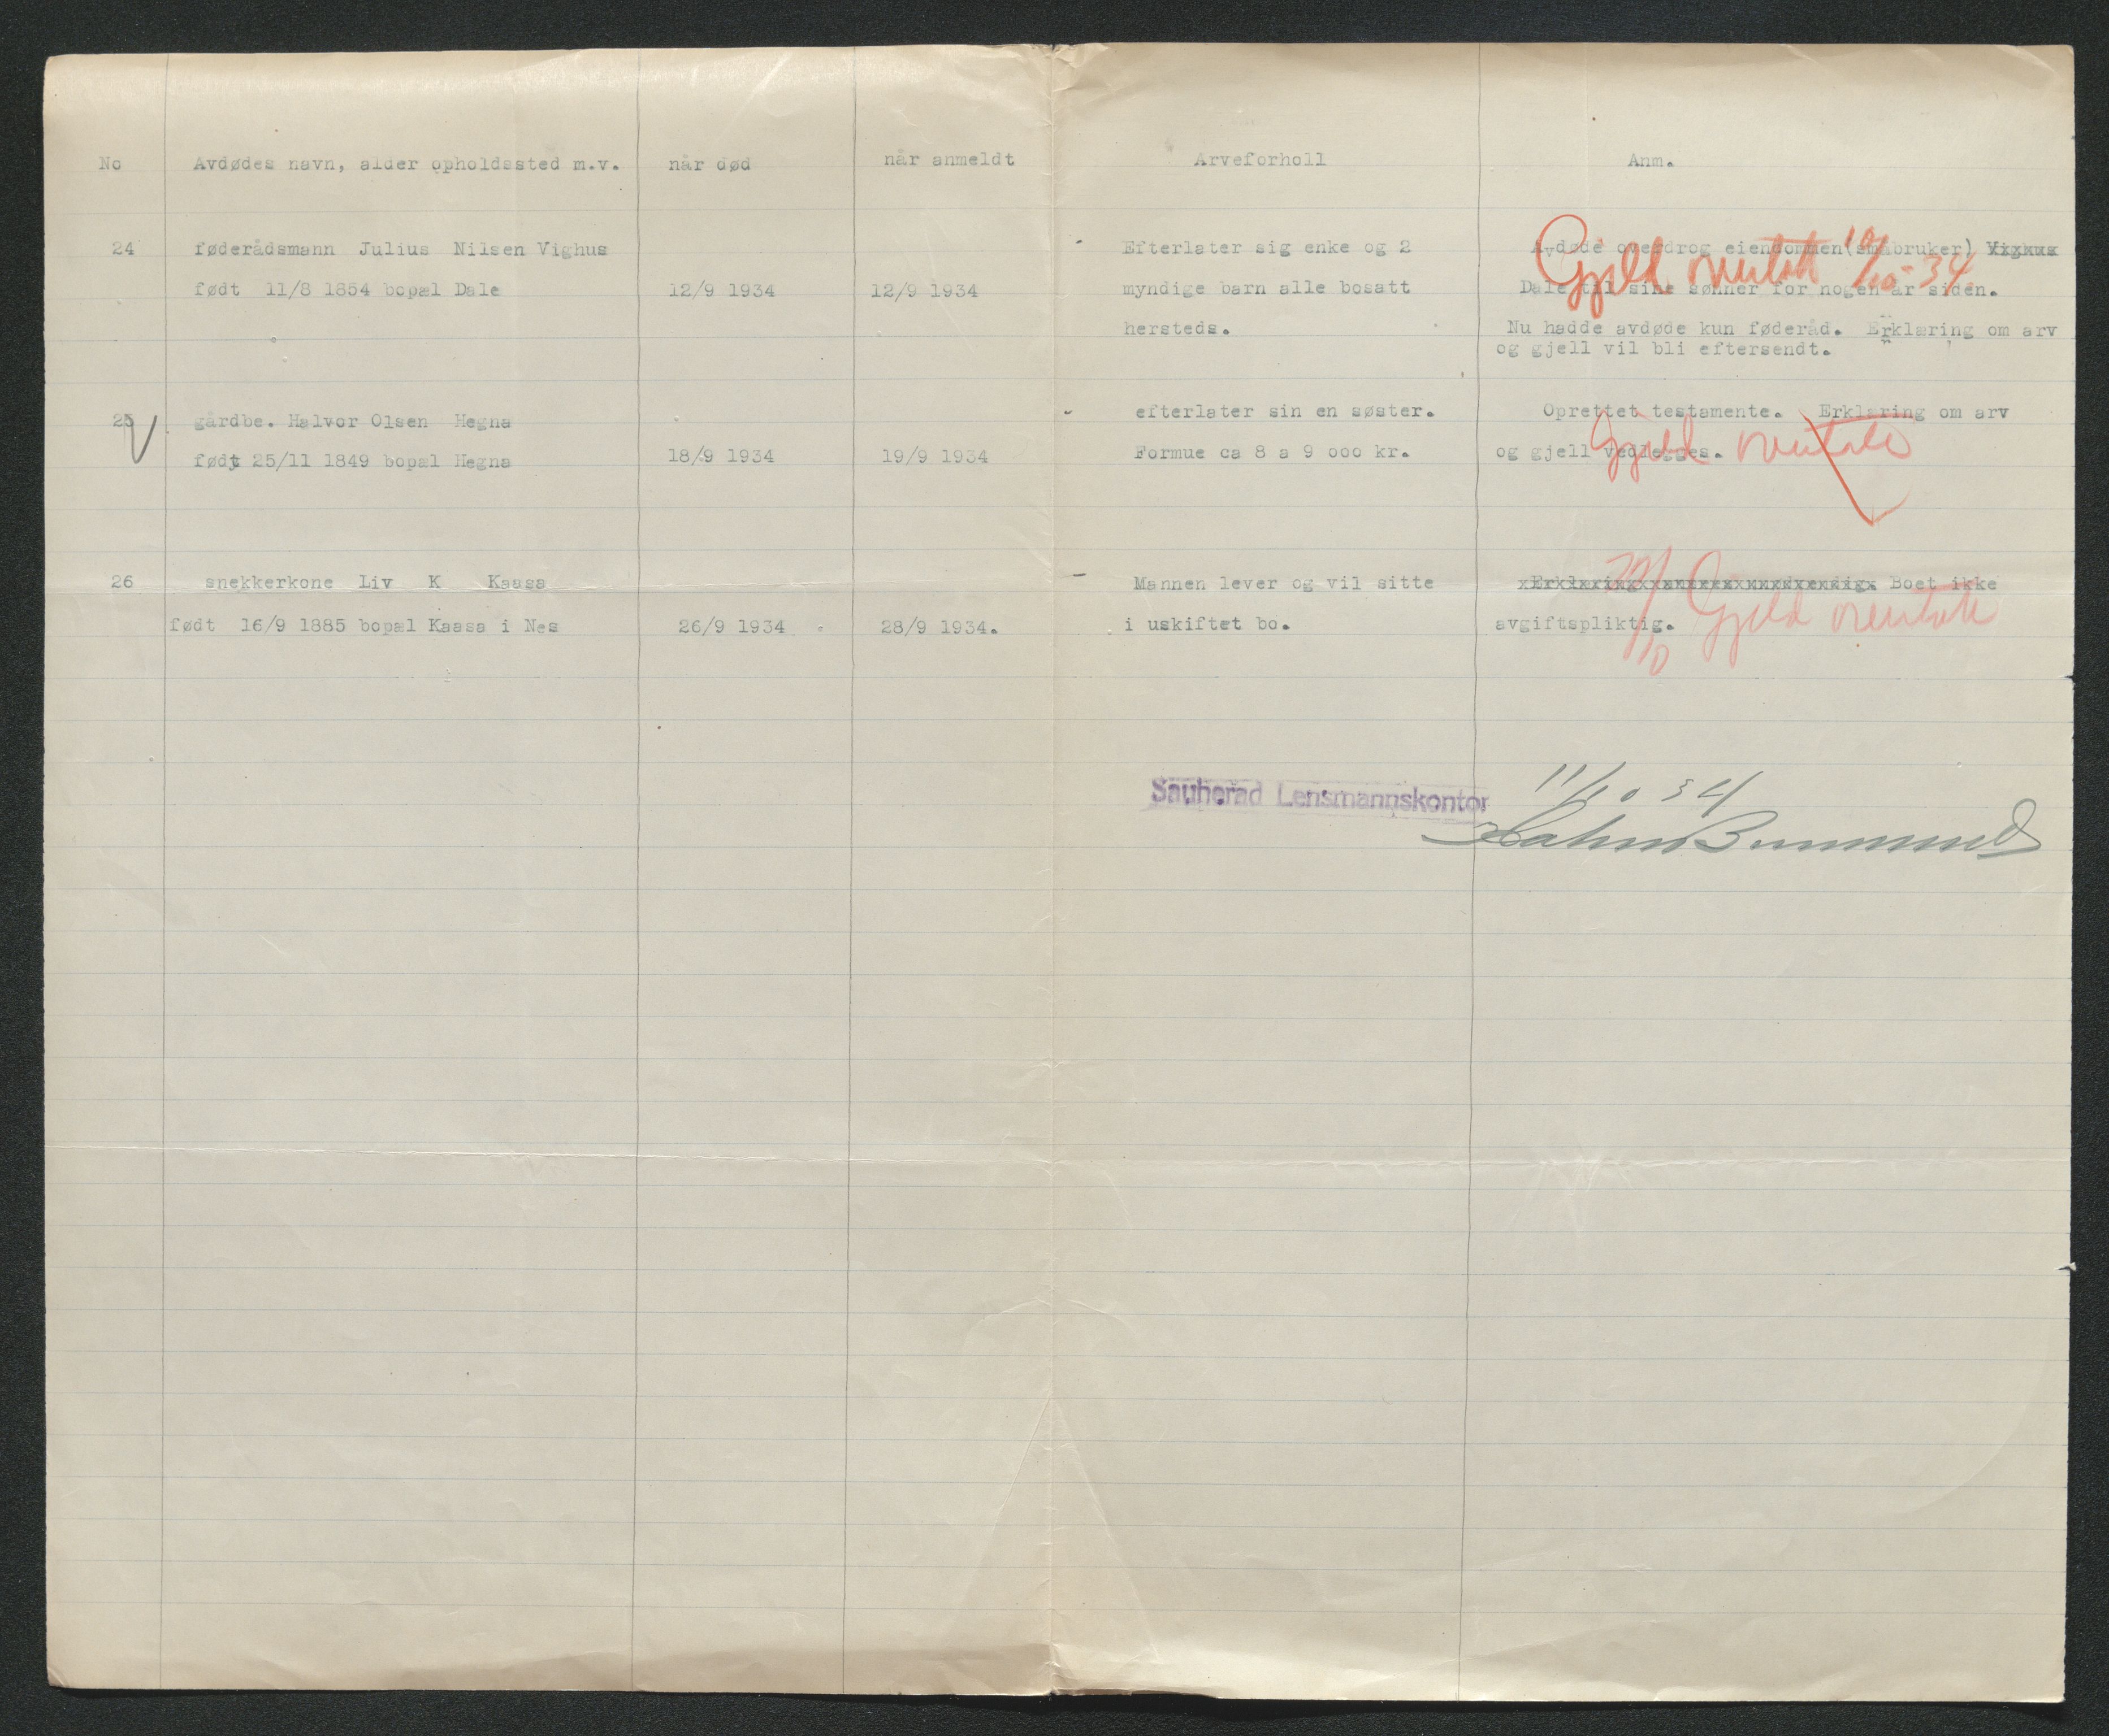 No Avdødes navn, alder opholdssted m.v. når død når anmeldt Arveforholl Anm.
24 føderådsmann Julius Nilsen Vighus Efterlater sig enke og 2 Avdøde overdrog eiendommen (småbruker) Vighus
født 11/8 1854 bopæl Dale 12/9 1934 12/9 1934 myndige barn alle bosatt Dale til sine sønner for nogen år siden.
hersteds. Nu hadde avdøde kun føderåd. Erklæring om arv
og gjell vil bli eftersendt.
Gjeld 10/10-34.
25 gårdbe. Halvor Olsen Hegna efterlater sin en søster. Oprettet testamente. Erklæring om arv
født 25/11 1849 bopæl Hegna 18/9 1934 19/9 1934 Formue ca 8 a 9 000 kr. og gjell vedlegges.
Gjeld
26 snekkerkone Liv K Kaasa Mannen lever og vil sitte Boet ikke
født 16/9 1885 bopæl Kaasa i Nes 26/9 1934 28/9 1934. i uskiftet bo. avgiftspliktig.
Gjeld
Sauherad Lensmannskontor 11/10 34